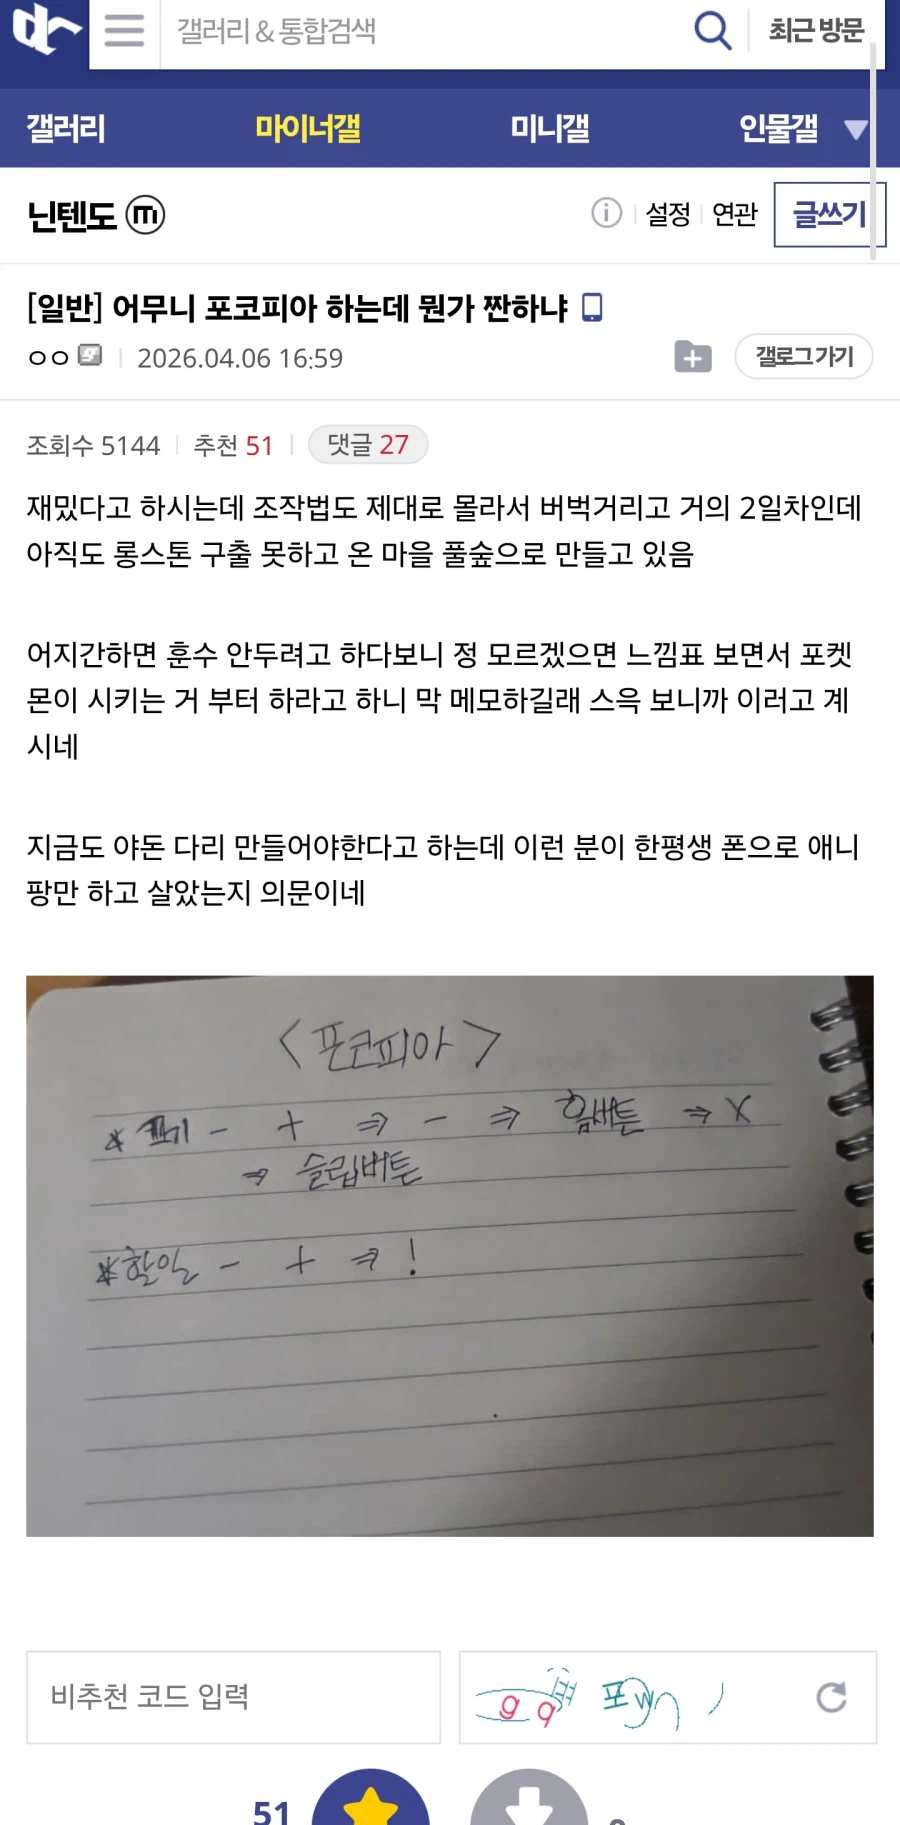 갤러리 & 통합검색
최근 방문
갤러리 마이너갤 미니갤 인물갤
닌텐도 ⓜ
설정 연관 글쓰기
[일반] 어무니 포코피아 하는데 뭔가 짠하냐
ㅇㅇ 2026.04.06 16:59
갤로그 가기
조회수 5144 추천 51 댓글 27
재밌다고 하시는데 조작법도 제대로 몰라서 버벅거리고 거의 2일차인데
아직도 롱스톤 구출 못하고 온 마을 풀숲으로 만들고 있음
어지간하면 훈수 안두려고 하다보니 정 모르겠으면 느낌표 보면서 포켓
몬이 시키는 거 부터 하라고 하니 막 메모하길래 스윽 보니까 이러고 계
시네
지금도 야돈 다리 만들어야한다고 하는데 이런 분이 한평생 폰으로 애니
팡만 하고 살았는지 의문이네
<포코피아>
* 끄기 - + ⇒ - ⇒ 홈버튼 ⇒ X
⇒ 슬립버튼
*할일 - + ⇒ !
비추천 코드 입력
51